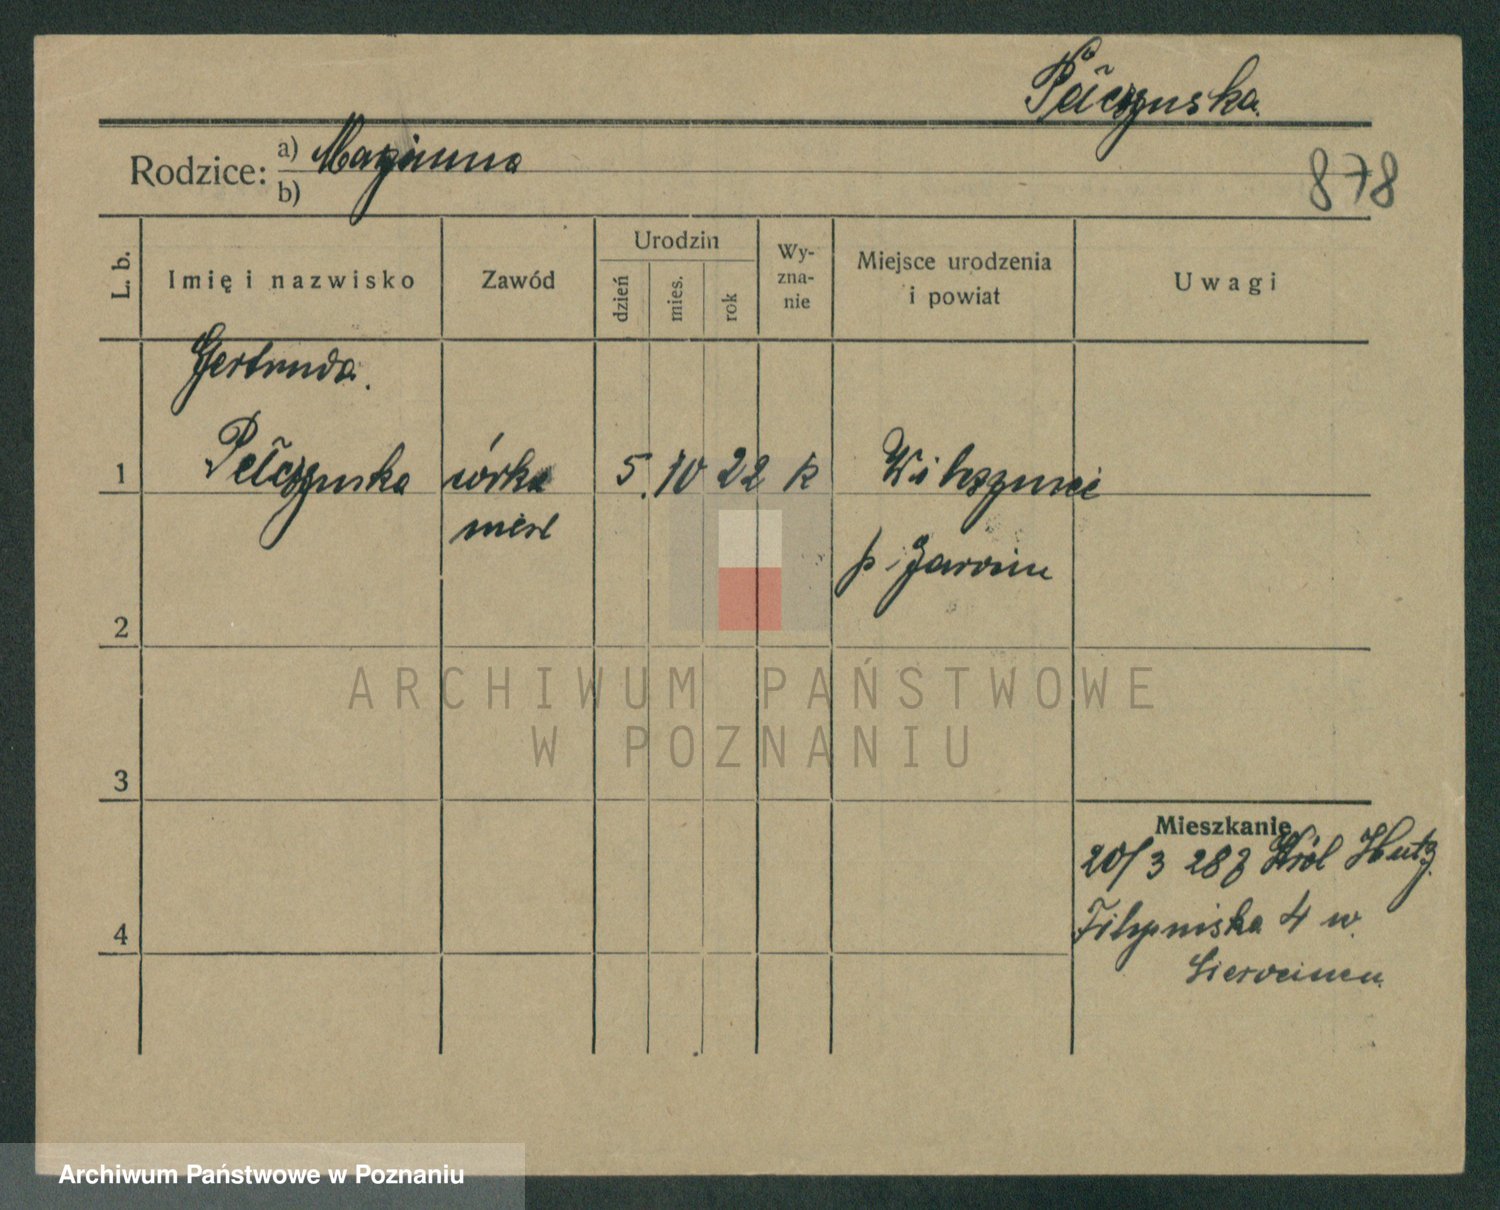 Pełczyńska
Rodzice: a) Marjanna
b)
878
L. b.
Imię i nazwisko
Zawód
Urodzin
dzień
mies.
rok
Wy-
zna-
nie
Miejsce urodzenia
i powiat
Uwagi
Gertruda.
1 Pełczyńska córka 5. 10 22 k
p. Jarocin
2
ARCHIWUM PAŃSTWOWE
W POZNANIU
3
Mieszkanie
20/3 28 z Król Huty
4 w
4
Archiwum Państwowe w Poznaniu